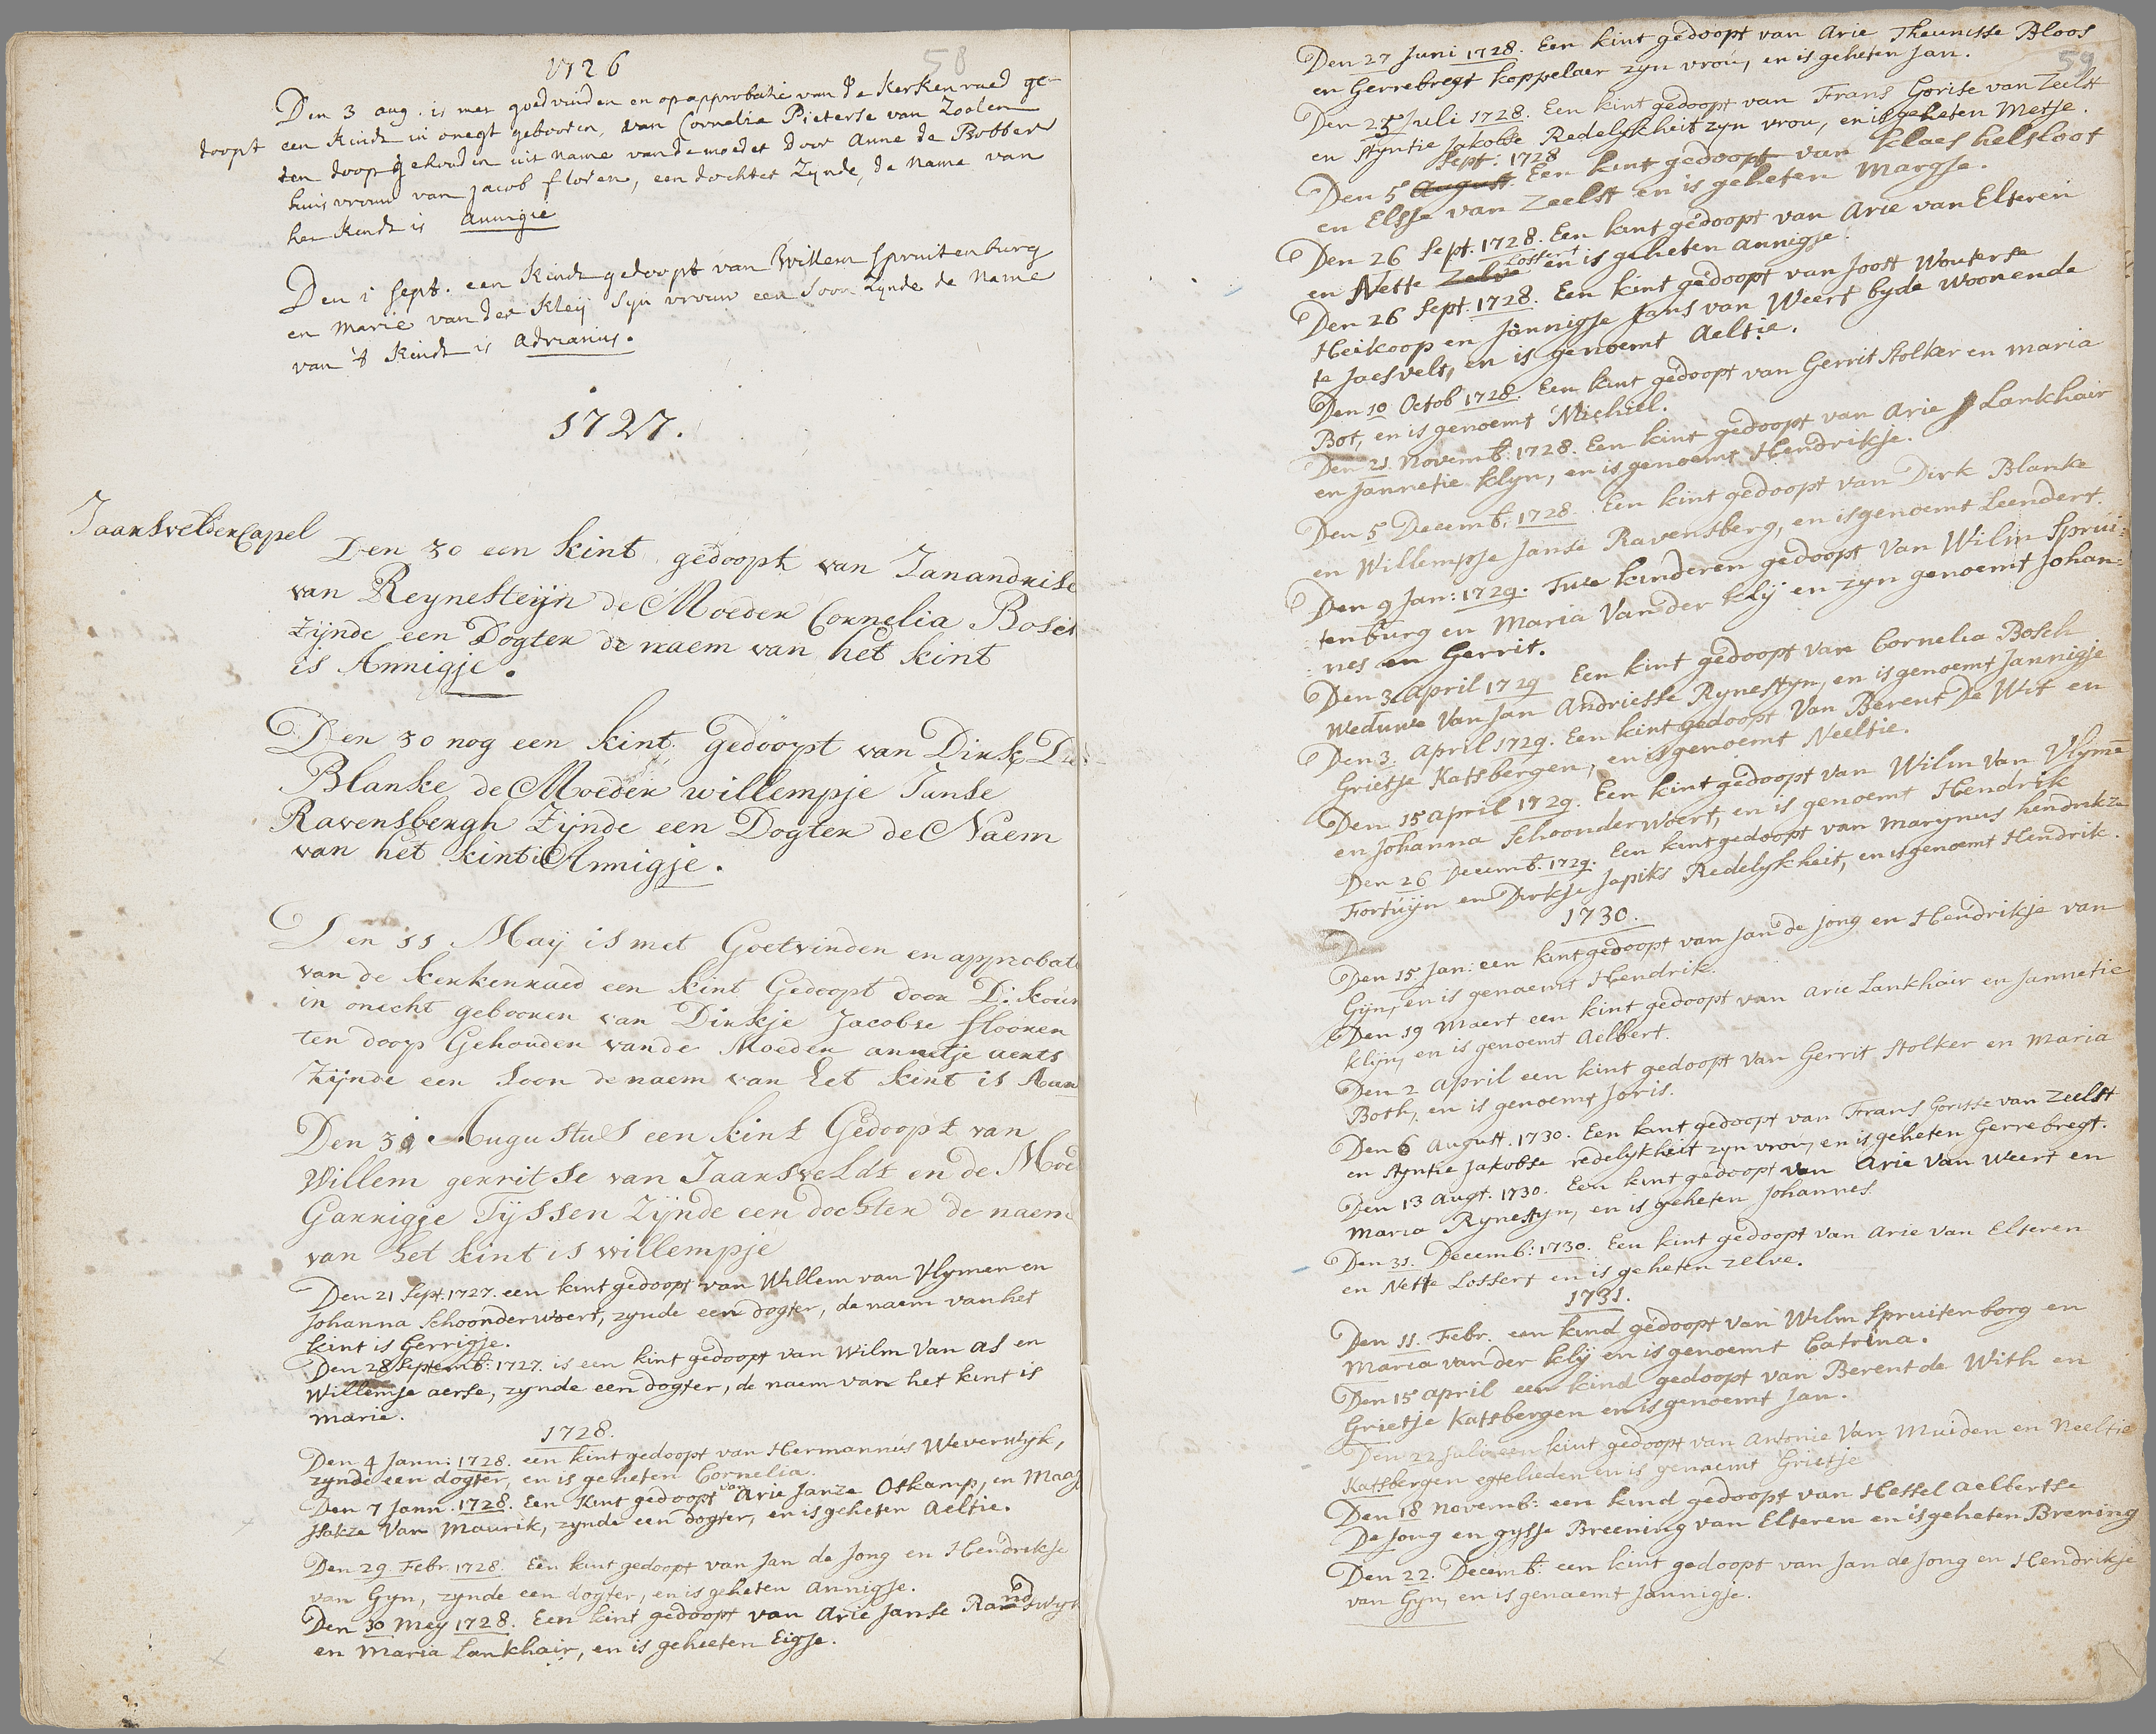 1726
58
Den 3 aug. is met goedvinden en op approbatie van de Kerkenraed ge-
doopt een Kindt in onegt gebooren, van Cornelia Pieterse van Zoolen
ten doop gehouden uit name van de moeder door Anne de Bobber
huisvrouw van Jacob floren, een dochter zynde, de name van
het Kindt is Annigie
Den 1 Sept. een Kindt gedoopt van Willem Spruitenburg
en Marie van der Kleij Syn vrouw een Soon zynde de Name
van 't Kindt is Adrianus.
1727.
Jaarsvelder Capel
Den 30 een kint gedoopt van Janandrise
van Reynesteijn de Moeder Cornelia Bosch
zijnde een Dogter de naem van het kint
is Annigje.
Den 30 nog een kint gedoopt van Dirk
Blanke de Moeder willempje Janse
Ravensbergh zijnde een Dogter de Naem
van het kint is Annigje.
Den 11 Maij is met Goetvinden en approbati
van de kerkenraed een kint Gedoopt door
in onecht gebooren van Dirkje Jacobse flooren
ten doop Gehouden vande Moeder annetje aerts
zijnde een Soon denaem van het kint is
Den 31 Augustus een kint Gedoopt van
Willem gerritse van Jaarsveldt en de Moe
Garrigje Tijssen zijnde een dochter de naem
van het kint is willempje
Den 21 Sept. 1727. een kint gedoopt van Willem van Vlymen en
Johanna Schoonderwoert, zynde een dogter, de naem van het
kint is Gerrigje.
Den 28 Septemb: 1727. is een kint gedoopt van Wilm Van as en
Willemje aerse, zynde een dogter, de naem van het kint is
marie.
1728.
Den 4 Jann: 1728. een kint gedoopt van Hermannus Weverwyk,
zynde een dogter, en is geheten Cornelia.
Den 7 Jann. 1728. Een Kint gedoopt van Arie Janze Otkamp, en Maas
Jsakze Van Maurik, zynde een dogter, en is geheten Aeltie.
Den 29 Febr. 1728. Een kint gedoopt van Jan de Jong en Hendrikje
van Gyn, zynde een dogter, en is geheten Annigje.
Den 30 Mey 1728. Een kint gedoopt van Arie Janse Randwyk
en Maria Lankhair, en is geheeten Eigje.
59
Den 27 Juni 1728. Een kint gedoopt van Arie Theunisse Bloos
en Gerrebregt koppelaer zyn vrou, en is geheten Jan.
Den 25 Juli 1728. Een kint gedoopt van Frans Gorise van Zeelst
en Styntie Jakobse Redelykheit zyn vrou, en is geheten Metje.
Sept: 1728
Den 5 August. Een kint gedoopt van klaes helsloot
en Elsje van Zeelst en is geheten Margje.
Den 26 Sept. 1728. Een kint gedoopt van Arie van Elteren
en Nette Zelve Lossert en is geheten annigje.
Den 26 Sept. 1728. Een kint gedoopt van Joost Wouterse
Heikoop en Jannigje Jans van Weert byde woonende
te Jaesvelt, en is genoemt Aeltie.
Den 10 Octob 1728. Een kint gedoopt van Gerrit Stolker en maria
Bot, en is genoemt Michiel.
Den 21. Novemb: 1728. Een kint gedoopt van Arie Lankhair
en Jannetie klyn, en is genoemt Hendrikje.
Den 5 Decemb: 1728. Een kint gedoopt van Dirk Blanke
en Willempje Janse Ravensberg, en is genoemt Leendert.
Den 9 Jan: 1729. Twe kinderen gedoopt Van Wilm Sprui-
tenburg en Maria Van der klij en zyn genoemt Johan-
nes en Gerrit.
Den 3 april 1729 Een kint gedoopt van Cornelia Bosch
Weduwe Van Jan Andriesse Rynestyn, en is genoemt Jannigje
Den 3. April 1729. Een kint gedoopt Van Berent De Wit en
Grietje Katsbergen, en is genoemt Neeltie.
Den 15 april 1729. Een kint gedoopt van Wilm Van Vlymē
en Johanna Schoonderwoert, en is genoemt Hendrik
Den 26 Decemb. 1729. Een kint gedoopt van Marynus hendrikze
Fortuijn en Dirkje Japiks Redelykheit, en is genoemt Hendrik.
1730.
Den
Den 15. Jan: een kint gedoopt van Jan de Jong en Hendrikje van
Gijn, en is genaemt Hendrik.
Den 19 Maert een kint gedoopt van Arie Lankhair en Jannetie
klijn, en is genoemt Aelbert.
Den 2 April een kint gedoopt van Gerrit Stolker en Maria
Both, en is genoemt Joris.
Den 6 August. 1730. Een kint gedoopt van Frans Gorisse van Zeelst
en Styntie Jakobse redelykheit zyn vrou, en is geheten Gerrebregt.
Den 13 Augt. 1730. Een kint gedoopt van Arie Van Weert en
Maria Rynestyn, en is geheten Johannes.
Den 31. Decemb: 1730. Een kint gedoopt van Arie van Elteren
en Nette Lossert en is geheten zelve.
1731.
Den 11. Febr. een kind gedoopt van Wilm Spruitenborg en
Maria van der klij en is genoemt Catrina.
Den 15 april een kind gedoopt van Berent de With en
Grietje Katsbergen en is genoemt Jan.
Den 22 Juli een kint gedoopt van Antonie Van Muiden en Neeltie
Katsbergen egtelieden en is genaemt Grietje
Den 18 Novemb: een kind gedoopt van Hessel Aelbertse
De Jong en gysje Breening van Elteren en is geheten Brening
Den 22. Decemb: een kint gedoopt van Jan de Jong en Hendrikje
van Gyn, en is genaemt Jannigje.